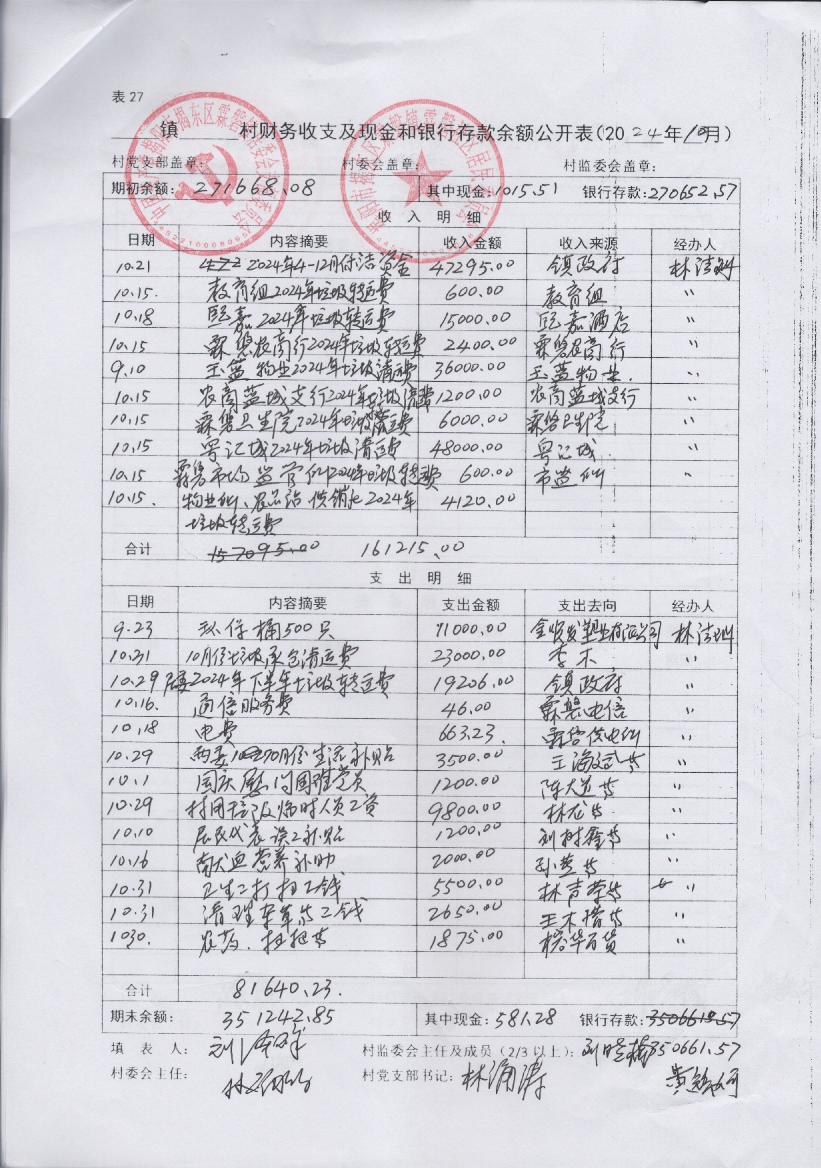 表 27
镇 村财务收支及现金和银行存款余额公开表(2024年10月)
村党支部盖章: 村委会盖章: 村监委会盖章:
期初余额: 271668.08 其中现金: 1015.51 银行存款: 270652.57
收 入 明 细
日期 内容摘要 收入金额 收入来源 经办人
10.21 2024年4-12月保洁资金 47295.00 镇政府
10.15. 教育组2024年垃圾转运费 600.00 教育组 "
10.18 熙嘉2024年垃圾转运费 15000.00 熙嘉酒店 "
10.15 霖磐农商行2024年垃圾转运费 2400.00 霖磐农商行 "
9.10 玉蓝物业2024年垃圾清运费 36000.00 玉蓝物业. "
10.15 农商蓝城支行2024年垃圾清运费 1200.00 农商蓝城支行 "
10.15 霖磐卫生院2024年垃圾清运费 6000.00 霖磐卫生院 "
10.15 粤记城2024年垃圾清运费 48000.00 粤记城 "
10.15 霖磐市场监管所2024年垃圾转运费 600.00 市监所 "
10.15. 物业所、农品站、供销社2024年 4120.00
垃圾转运费
合计 157095.00 161215.00
支 出 明 细
日期 内容摘要 支出金额 支出去向 经办人
9.23 环保桶500只 11000.00
10.31 10月份垃圾承包清运费 23000.00 李木 "
10.29 2024年下半年垃圾转运费 19206.00 镇政府 "
10.16. 通信服务费 46.00 霖磐电信 "
10.18 电费 663.23 霖磐供电所 "
10.29 两委10月份生活补贴 3500.00 王海斌等 "
10.1 国庆慰问困难党员 1200.00 陈大道等 "
10.29 村用临时人员工资 9800.00 林龙等 "
10.10 居民代表误工补贴 1200.00 刘树鑫等 "
10.16 献血营养补助 2000.00 孙 等 "
10.31 卫生工打扫工钱 5500.00 林声 等 "
10.31 清理杂草等工钱 2650.00 王木 等 "
1030. 农药.扫把等 1875.00 榕华百货 "
合计 81640.23.
期末余额: 351242.85 其中现金: 581.28 银行存款: 3506618.57
填 表 人: 村监委会主任及成员(2/3 以上): 350661.57
村委会主任: 村党支部书记: 林涌涛